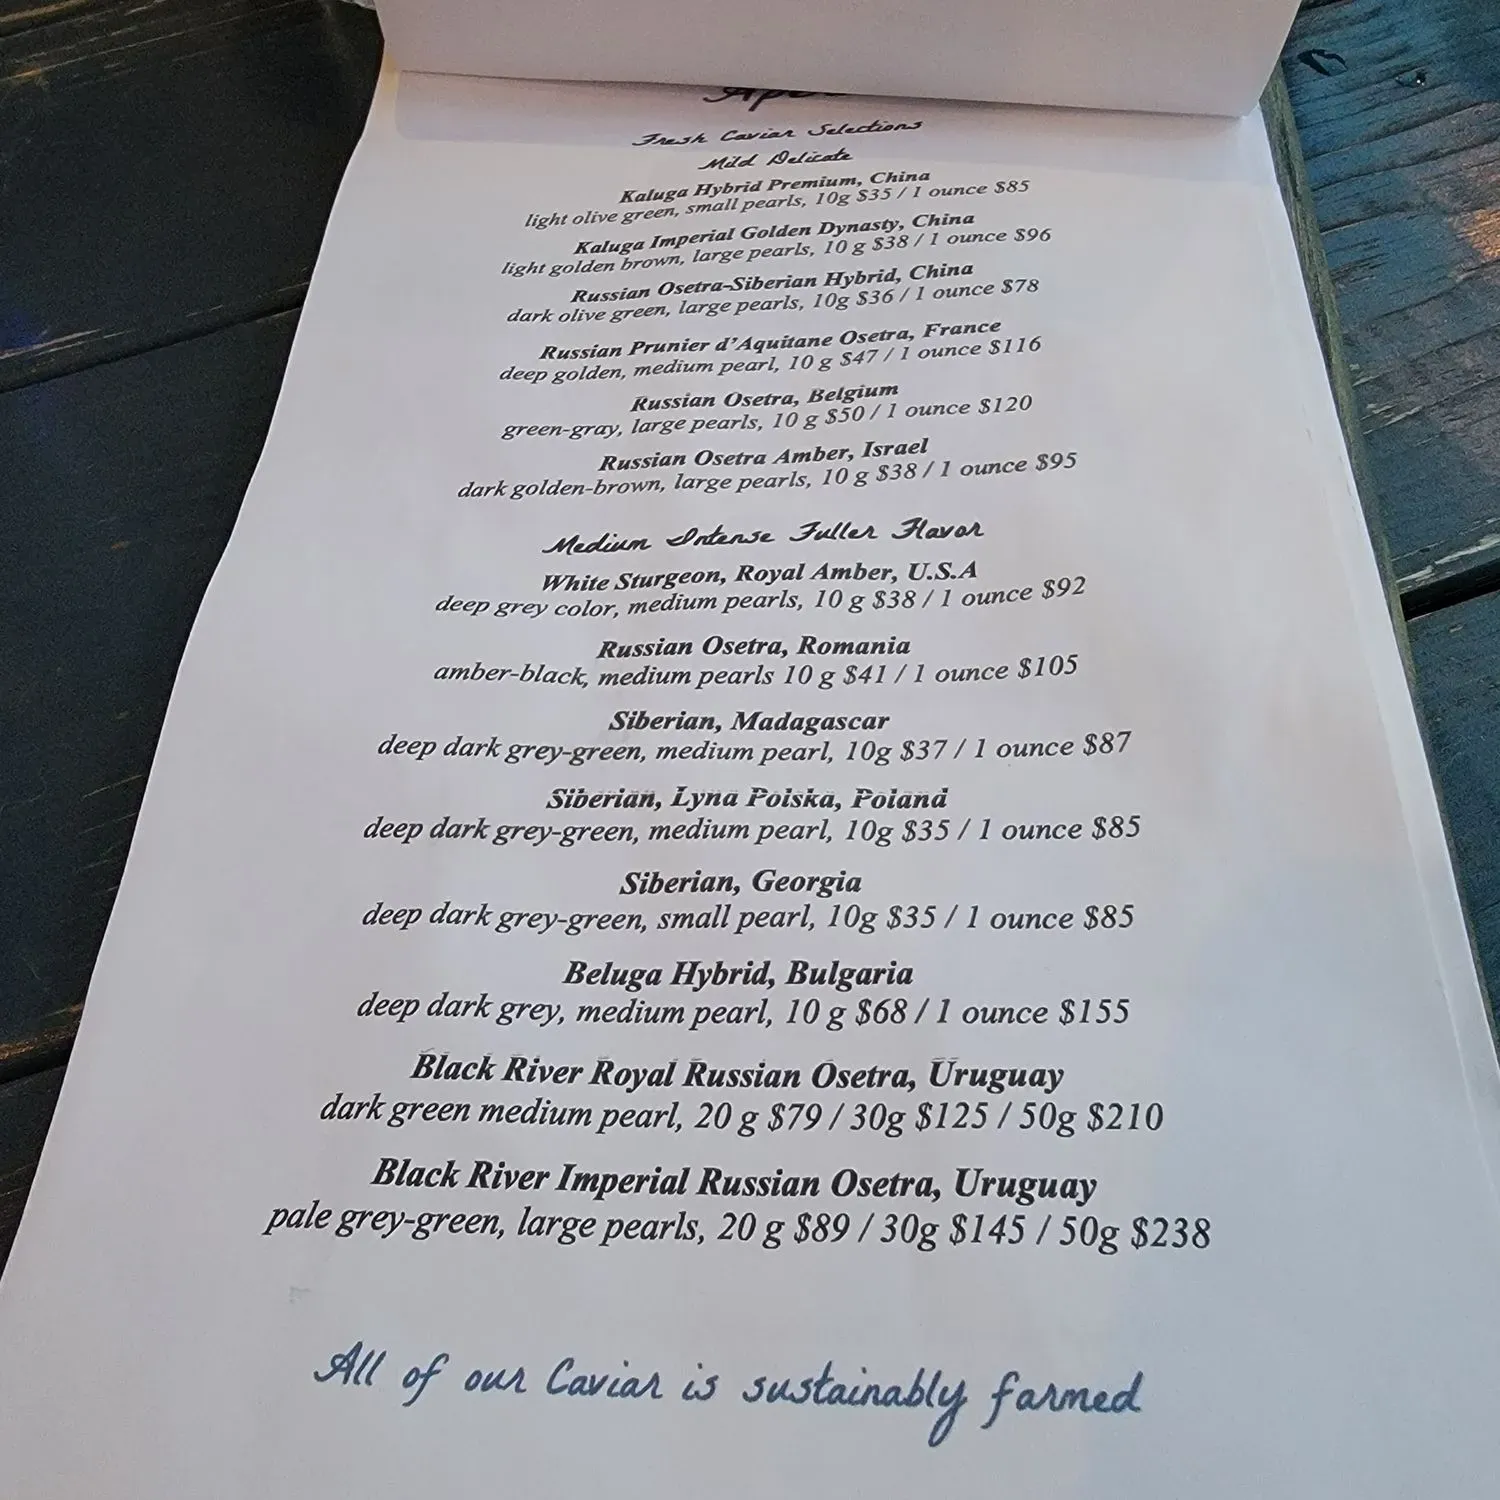 Fresh Caviar Selections
Mild Delicate
Kaluga Hybrid Premium, China
light olive green, small pearls, 10g $35 / 1 ounce $85
Kaluga Imperial Golden Dynasty, China
light golden brown, large pearls, 10 g $38 / 1 ounce $96
Russian Osetra-Siberian Hybrid, China
dark olive green, large pearls, 10g $36 / 1 ounce $78
Russian Prunier d'Aquitane Osetra, France
deep golden, medium pearl, 10 g $47 / 1 ounce $116
Russian Osetra, Belgium
green-gray, large pearls, 10 g $50 / 1 ounce $120
Russian Osetra Amber, Israel
dark golden-brown, large pearls, 10 g $38 / 1 ounce $95
Medium Intense Fuller Flavor
White Sturgeon, Royal Amber, U.S.A
deep grey color, medium pearls, 10 g $38 / 1 ounce $92
Russian Osetra, Romania
amber-black, medium pearls 10 g $41 / 1 ounce $105
Siberian, Madagascar
deep dark grey-green, medium pearl, 10g $37 / 1 ounce $87
Siberian, Lyna Polska, Poland
deep dark grey-green, medium pearl, 10g $35 / 1 ounce $85
Siberian, Georgia
deep dark grey-green, small pearl, 10g $35 / 1 ounce $85
Beluga Hybrid, Bulgaria
deep dark grey, medium pearl, 10 g $68 / 1 ounce $155
Black River Royal Russian Osetra, Uruguay
dark green medium pearl, 20 g $79 / 30g $125 / 50g $210
Black River Imperial Russian Osetra, Uruguay
pale grey-green, large pearls, 20 g $89 / 30g $145 / 50g $238
All of our Caviar is sustainably farmed